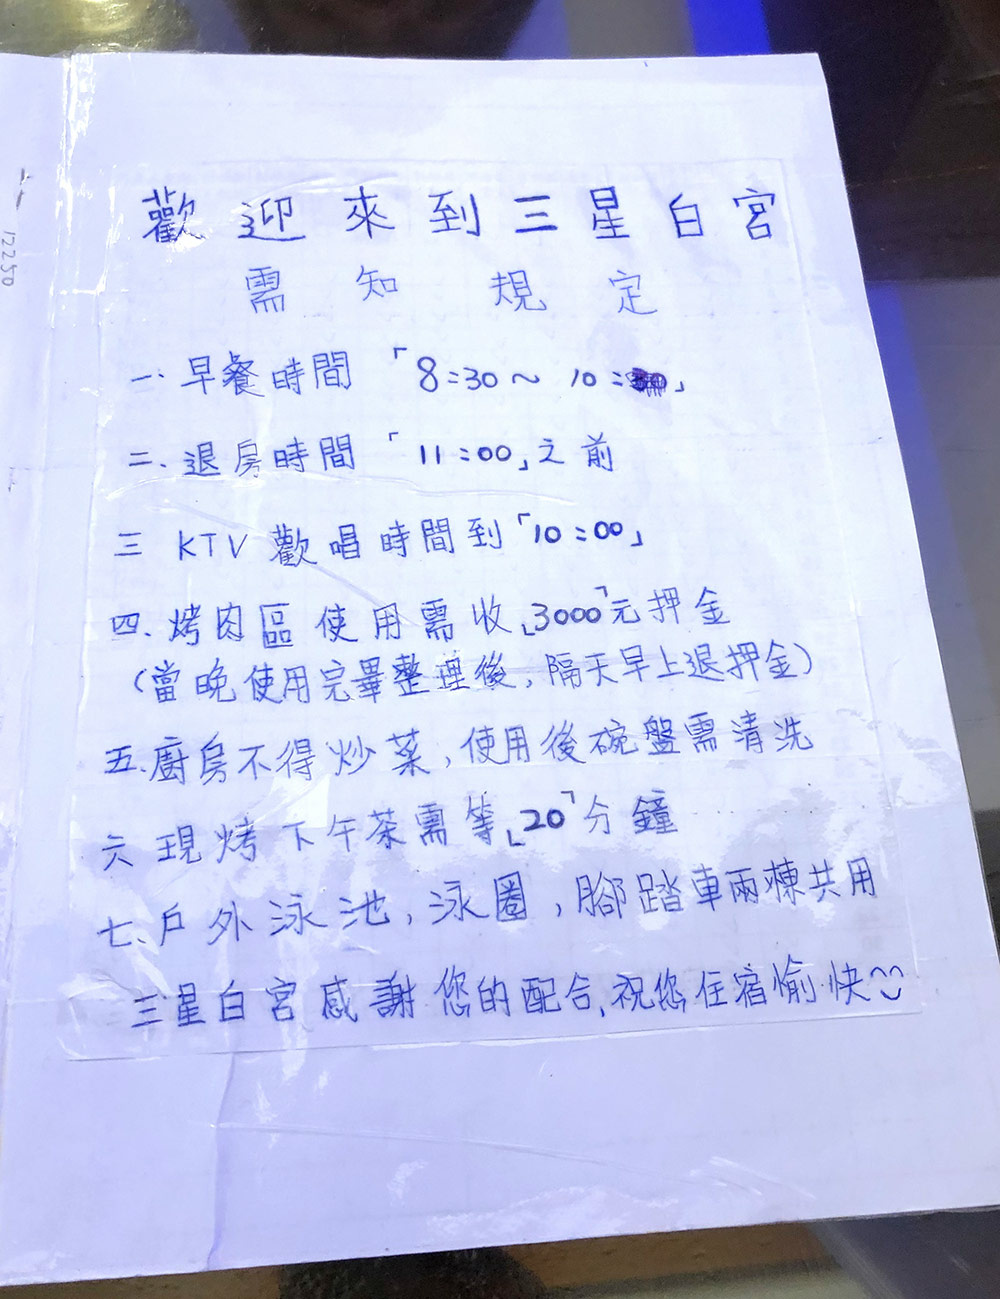 歡迎來到三星白宮
需知規定
一、早餐時間「8:30~10:」
二、退房時間「11:00」之前
三 KTV歡唱時間到「10:00」
四、烤肉區使用需收「3000」元押金
(當晚使用完畢整理後，隔天早上退押金)
五、廚房不得炒菜，使用後碗盤需清洗
六 現烤下午茶需等「20」分鐘
七、戶外泳池，泳圈，腳踏車兩棟共用
三星白宮感謝您的配合，祝您住宿愉快^^
12250